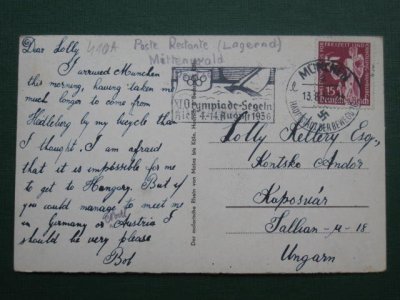 Dear Lolly
410A
I arrived Munchen
this morning, having taken me
much longer to come from
Hedleberg by my bicycle than
I thought. I am afraid
that it is impossible for me
to get to Hungary. But if
you could manage to meet me
in Germany or Austria I
should be very please
Bob
Poste Restante (Lagernd)
Mittenwald
XI. Olympiade-Segeln
Kiel 4.-14. August 1936
MÜNCHEN
13.8
HAUPTSTADT DER BEWEGUNG
15
Deutsches Reich
Lolly Kellery Esq.,
Kontsko Andor
Kaposvár
Tallian-u-18
Ungarn
Der malerische Rhein von Mainz bis Köln